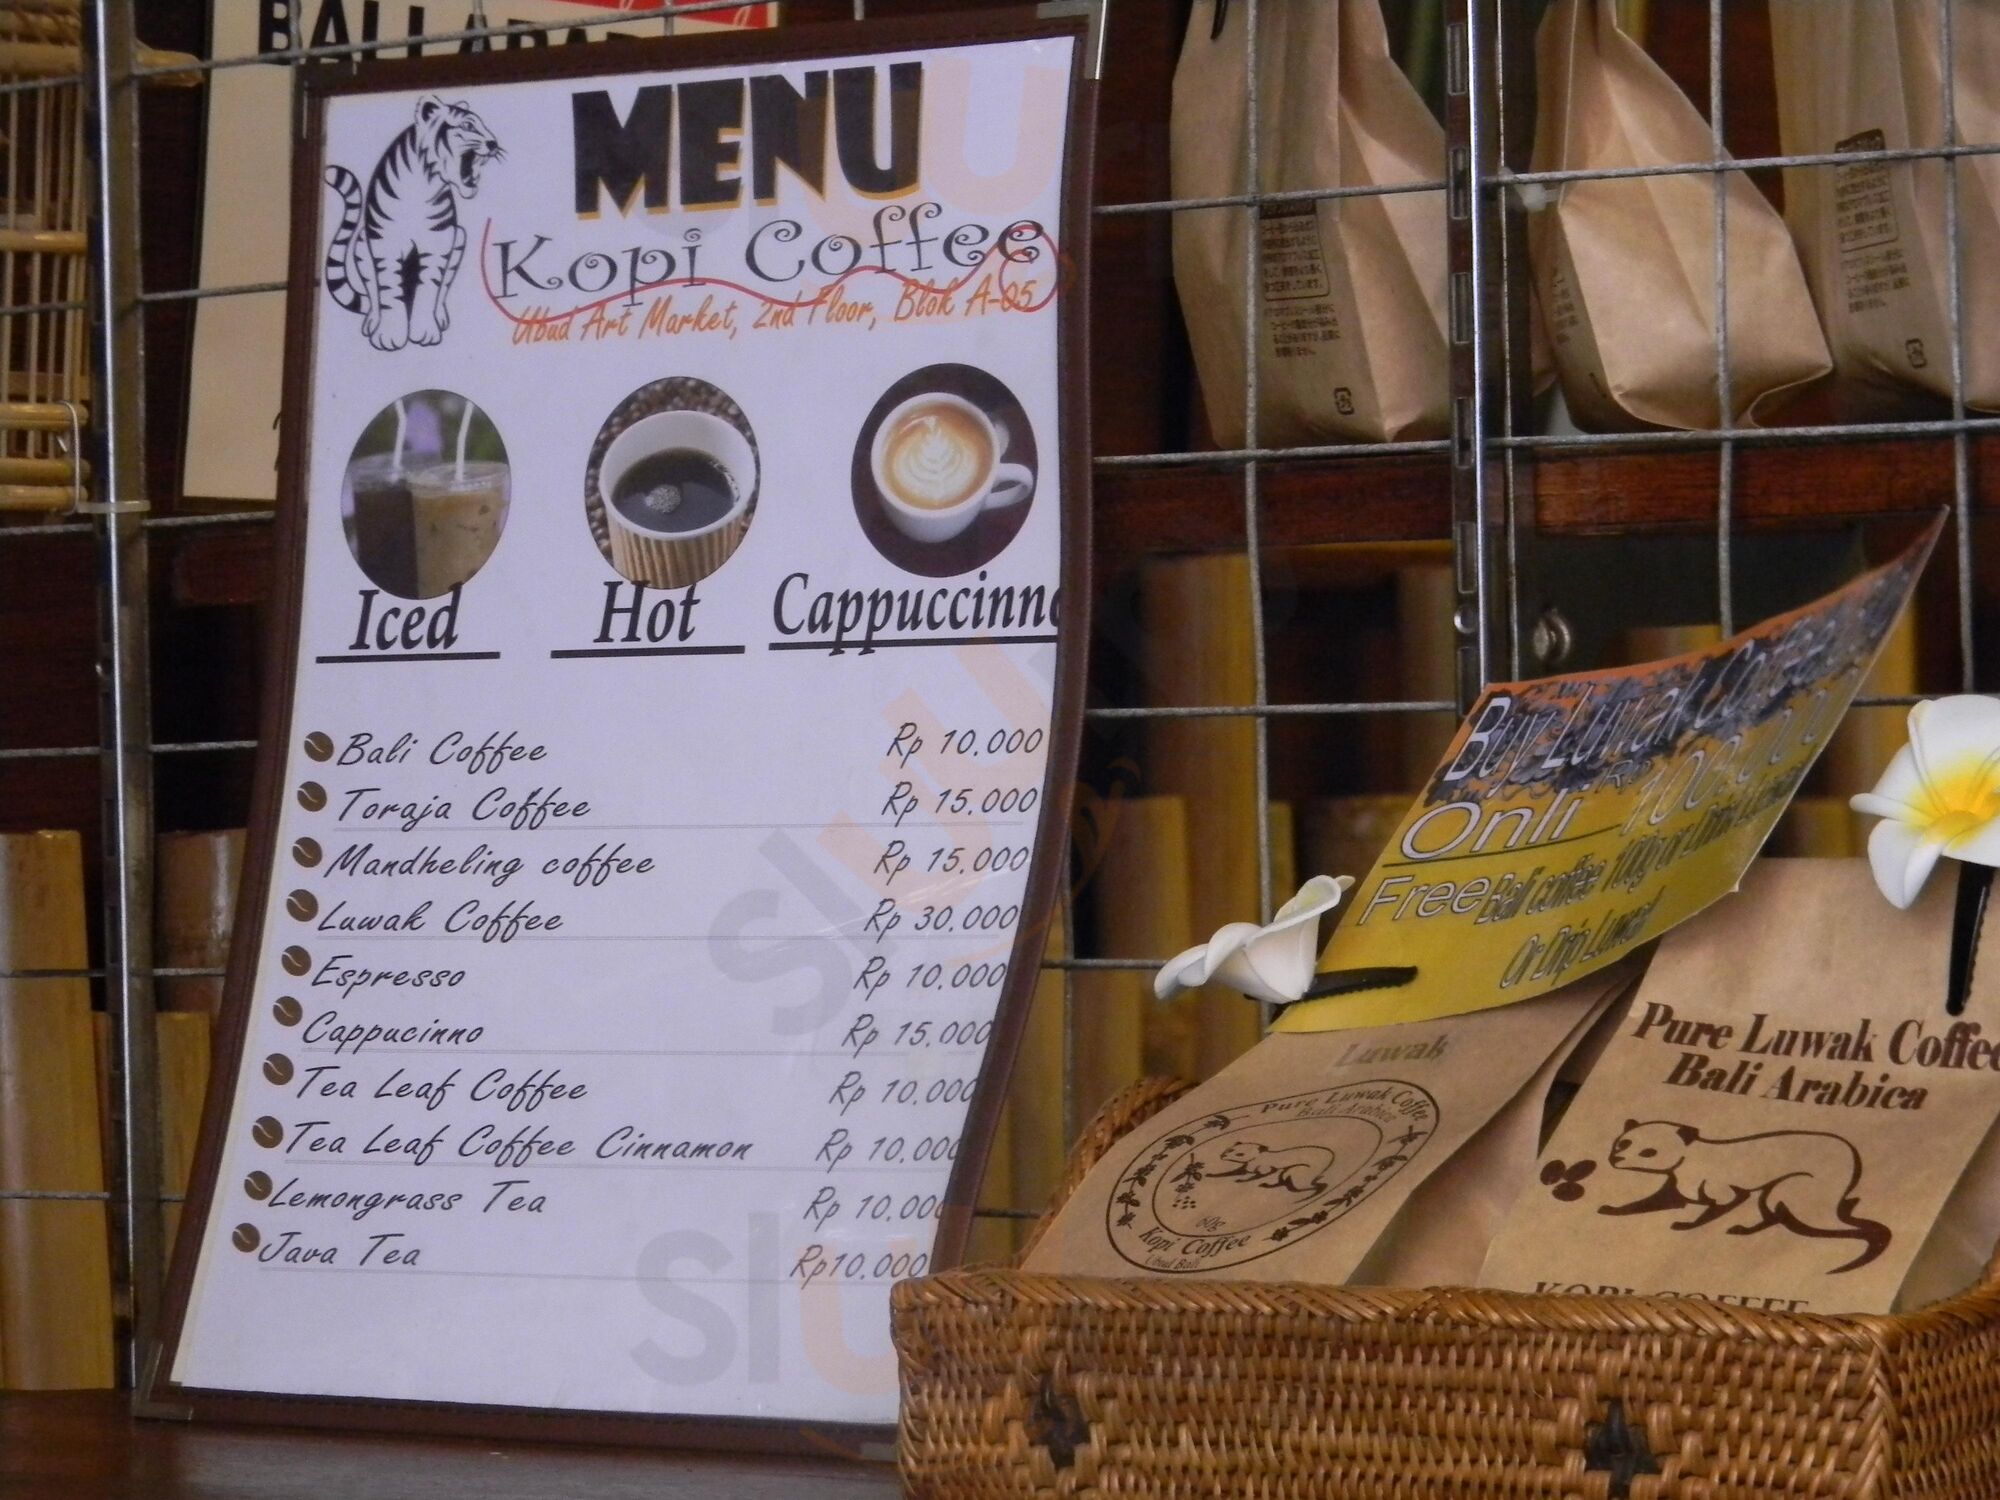 MENU
Kopi Coffee
Ubud Art Market, 2nd Floor, Blok A-05
Iced Hot Cappuccino
Bali Coffee Rp 10.000
Toraja Coffee Rp 15.000
Mandheling coffee Rp 15.000
Luwak Coffee Rp 30.000
Espresso Rp 10.000
Cappucinno Rp 15.000
Tea Leaf Coffee Rp 10.000
Tea Leaf Coffee Cinnamon Rp 10.000
Lemongrass Tea Rp 10.000
Java Tea Rp10.000
Buy Luwak Coffee
Onli Rp 100.000
Free Bali coffee 100g or Drink Luwak
Or Drip Luwak
Luwak
Pure Luwak Coffee
Bali Arabica
60g
Kopi Coffee
Ubud Bali
Pure Luwak Coffee
Bali Arabica
KOPI COFFEE